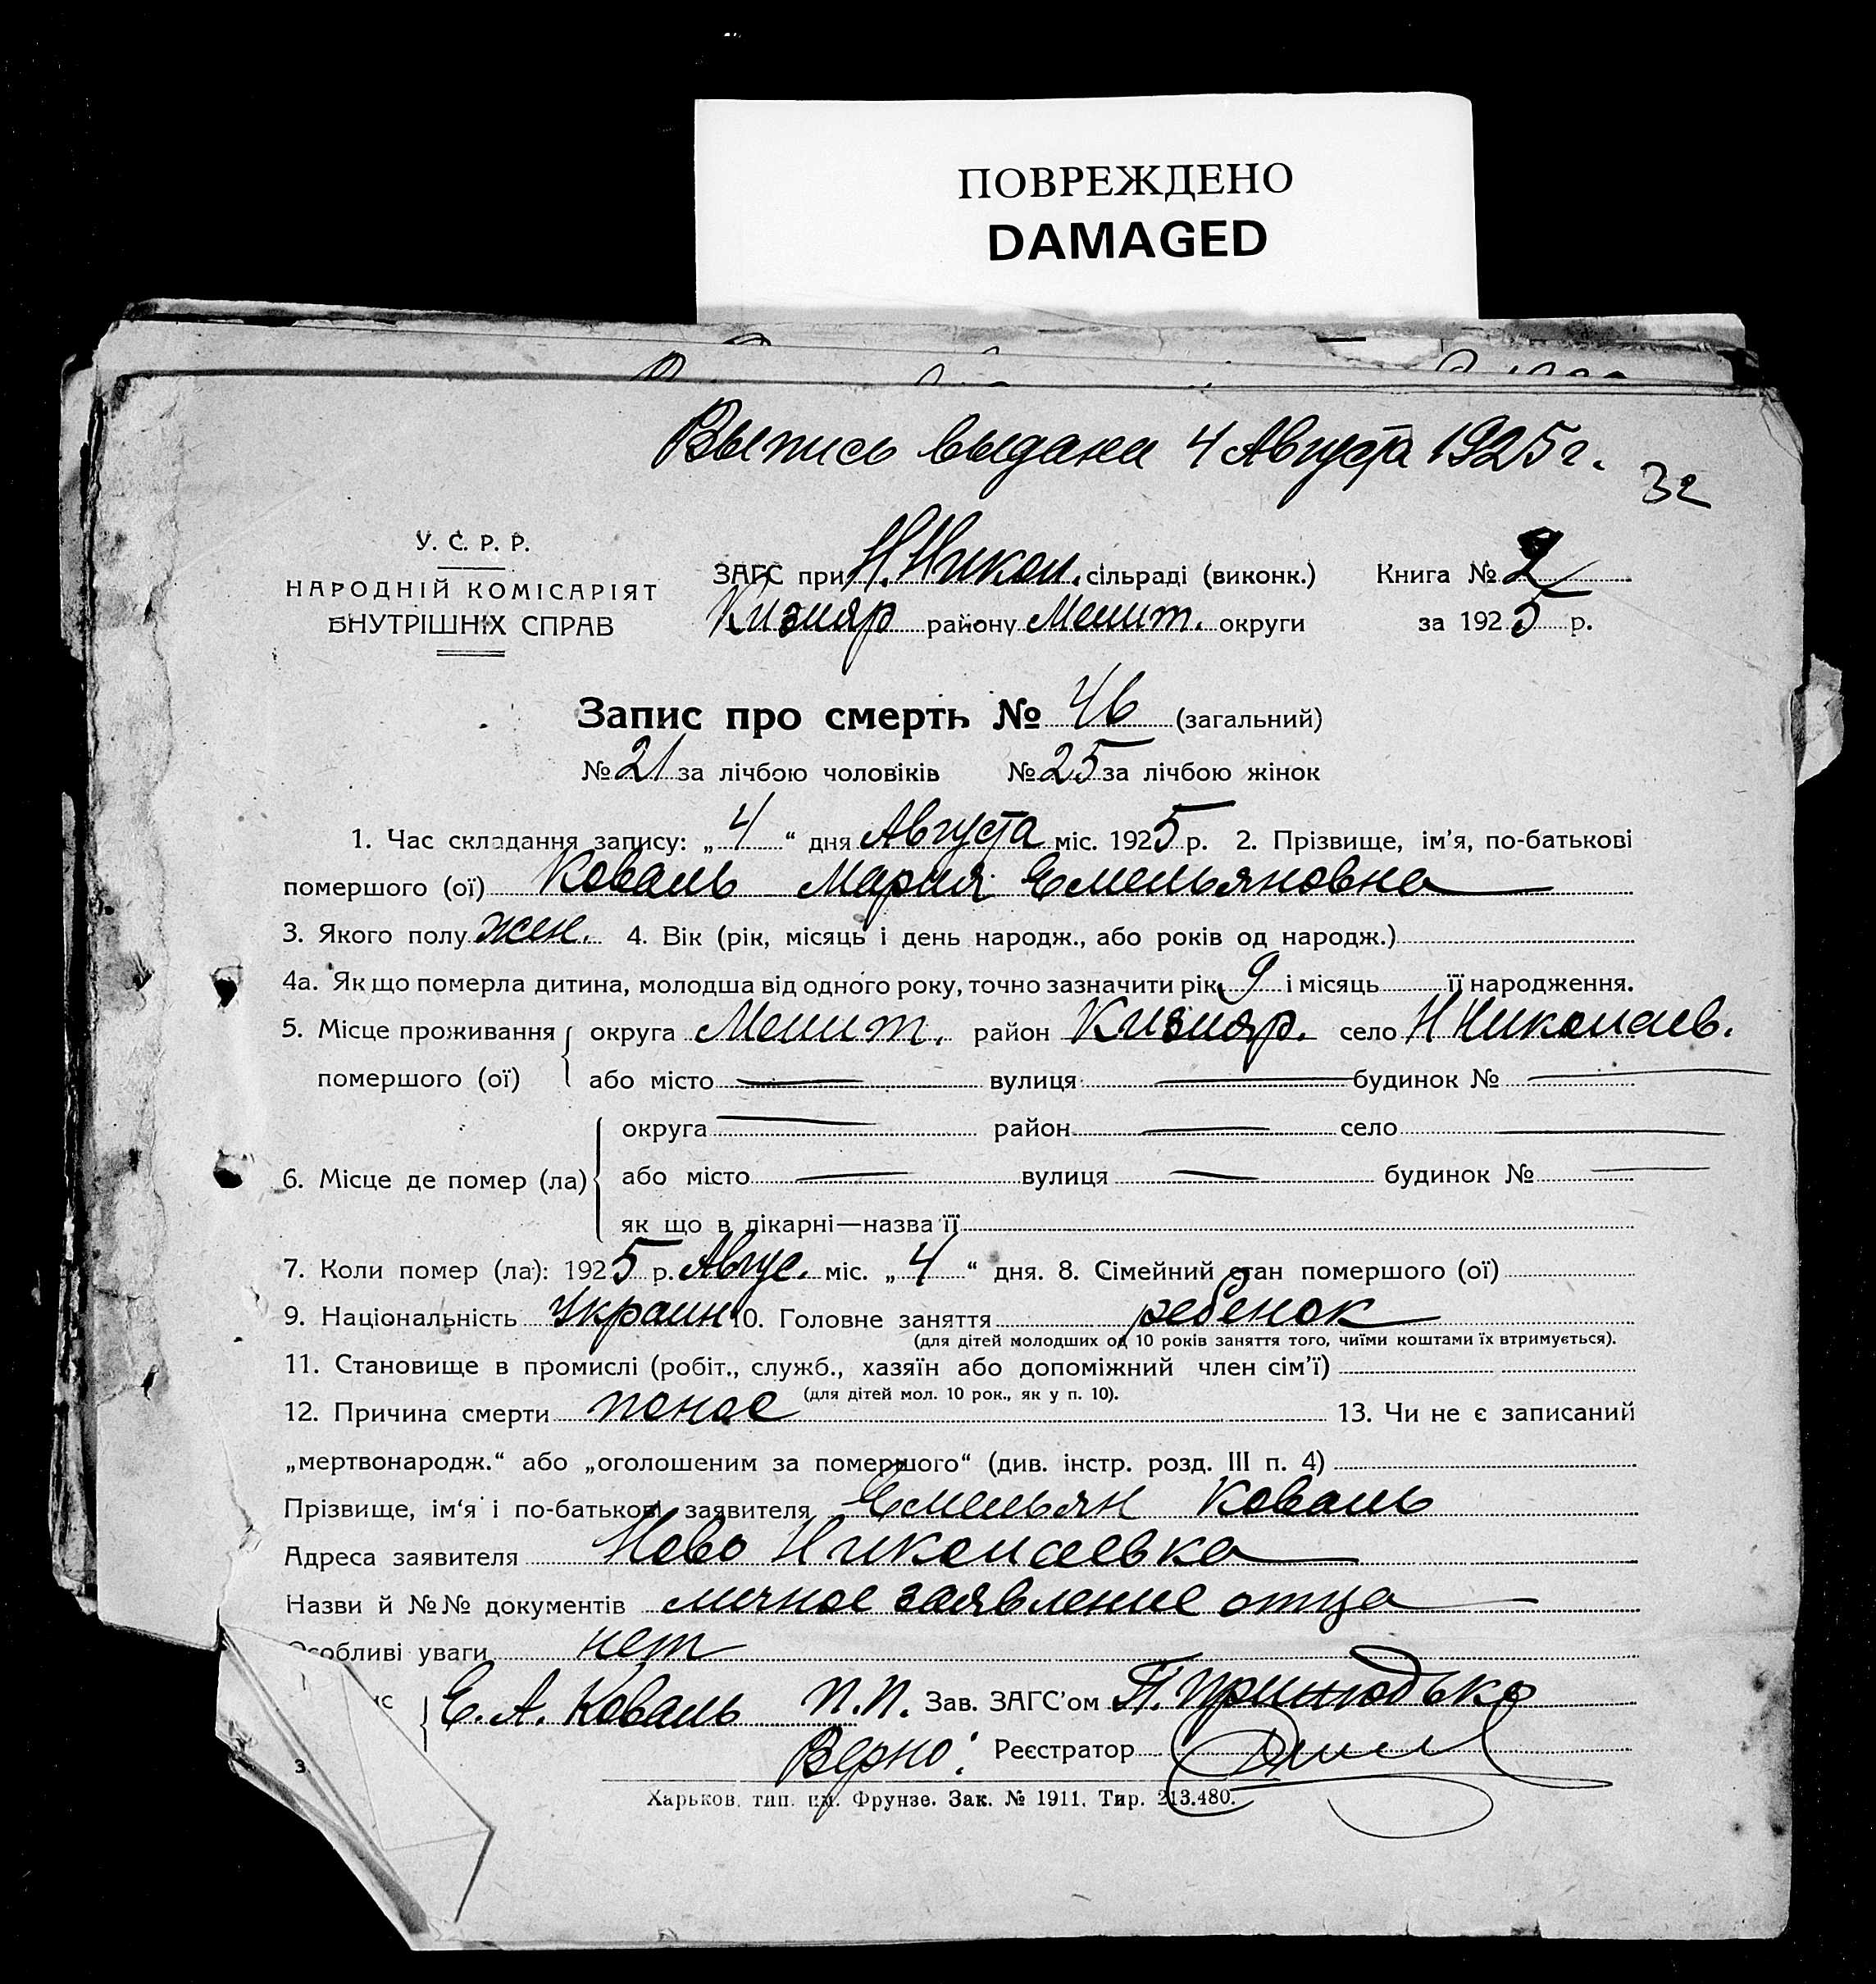 ПОВРЕЖДЕНО
DAMAGED
Выпись выдана 4 Августа 1925 г.
32
У. С. Р. Р.
НАРОДНІЙ КОМІСАРІЯТ
ВНУТРІШНІХ СПРАВ
ЗАГС при Н. Никол. сільраді (виконк.) Книга № 2
Кизияр району Мелит. округи за 1925 р.
Запис про смерть № 46 (загальний)
№ 21 за лічбою чоловіків № 25 за лічбою жінок
1. Час складання запису: „4“ дня Августа міс. 1925 р. 2. Прізвище, ім'я, по-батькові
помершого (ої) Коваль Мария Емельяновна
3. Якого полу жен. 4. Вік (рік, місяць і день народж., або років од народж.)
4а. Як що померла дитина, молодша від одного року, точно зазначити рік 9 і місяць її народження.
5. Місце проживання помершого (ої) округа Мелит. район Кизияр. село Н Николаев.
або місто — вулиця — будинок № —
6. Місце де помер (ла) округа — район — село —
або місто — вулиця — будинок № —
як що в лікарні—назва її
7. Коли помер (ла): 1925 р. Авгус. міс. „4“ дня. 8. Сімейний стан помершого (ої)
9. Національність Украин 10. Головне заняття ребенок
(для дітей молодших од 10 років заняття того, чиїми коштами їх втримується).
11. Становище в промислі (робіт., служб., хазяїн або допоміжний член сім'ї)
(для дітей мол. 10 рок., як у п. 10).
12. Причина смерти понос 13. Чи не є записаний
„мертвонародж.“ або „оголошеним за помершого“ (див. інстр. розд. III п. 4)
Прізвище, ім'я і по-батькові заявителя Емельян Коваль
Адреса заявителя Ново Николаевка
Назви й №№ документів личное заявление отца
Особливі уваги нет
Е. А. Коваль П.П. Зав. ЗАГС'ом П.
Верно: Реєстратор
Харьков, тип. им. Фрунзе. Зак. № 1911. Тир. 213.480.